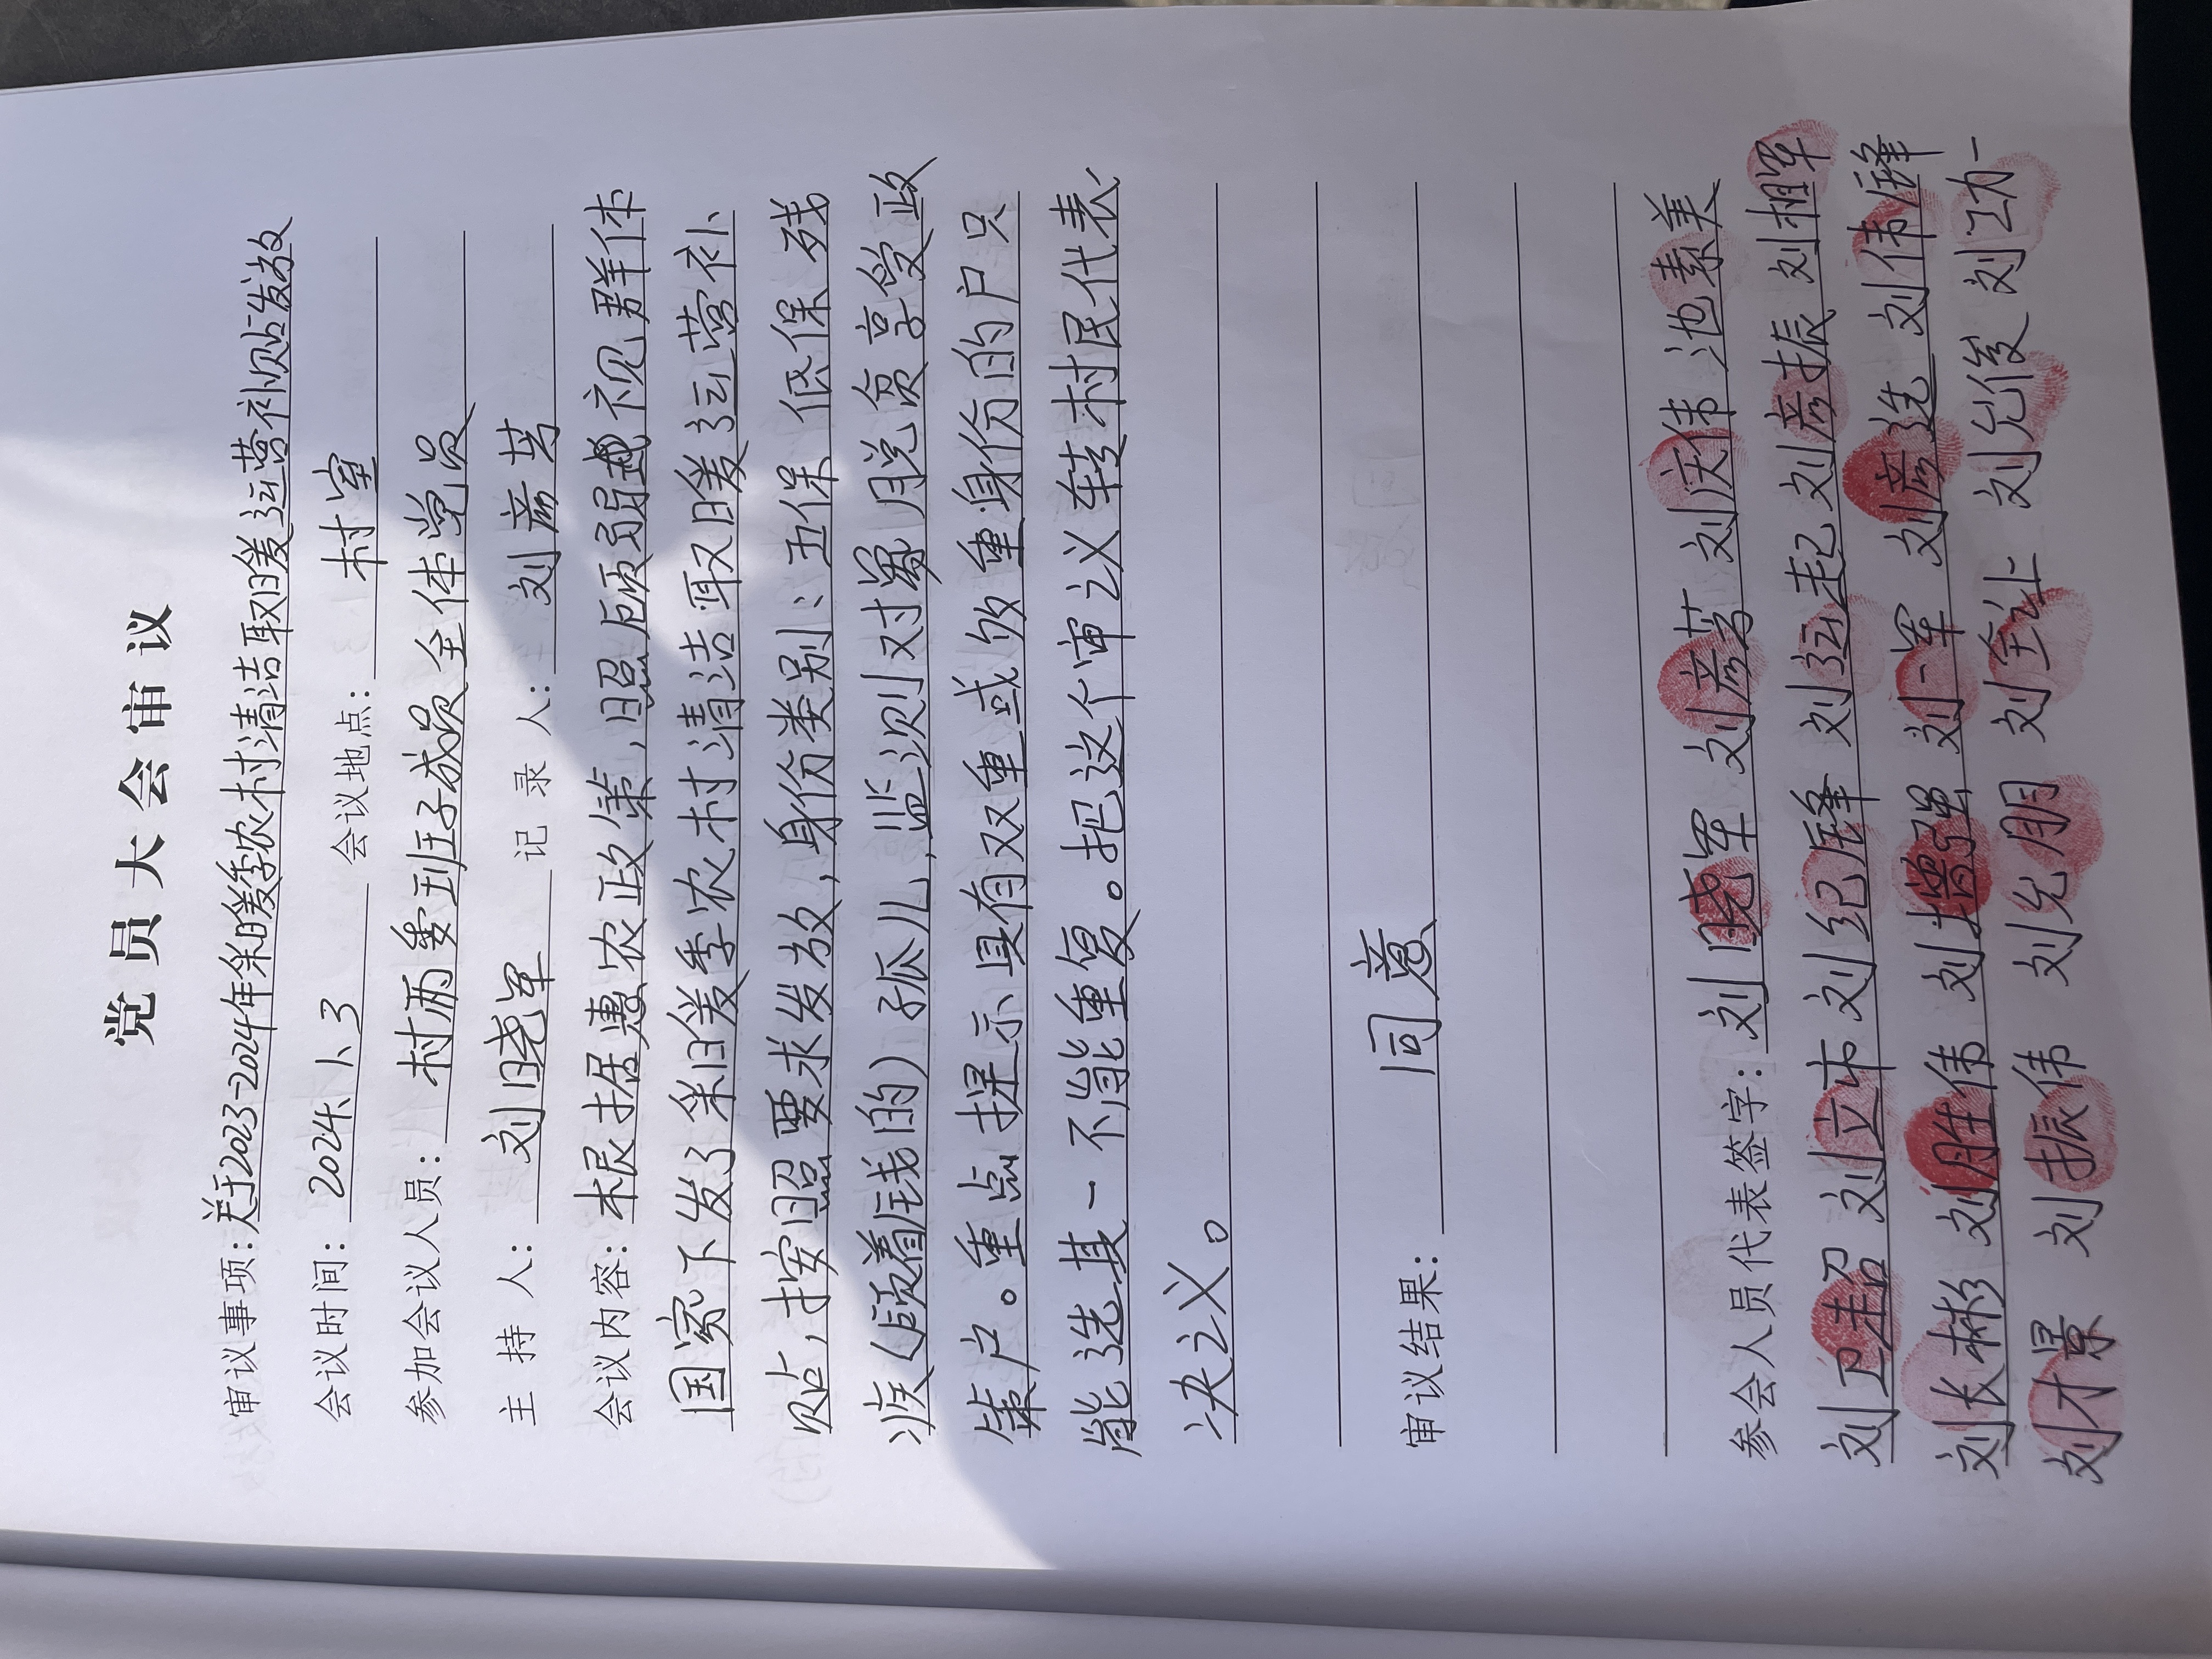 党员大会审议
审议事项:关于2023-2024年采暖季农村清洁取暖运营补贴发放
会议时间:2024.1.3 会议地点:村室
参加会议人员:村两委班子成员全体党员
主持人:刘晓军 记录人:刘彦芳
会议内容:根据惠农政策,照顾弱视群体
国家下发了采暖季农村清洁取暖运营补
贴,按照要求发放,身份类别:五保 低保 残
疾(领着钱的)孤儿,监测对象 脱贫享受政
策户。重点提示具有双重或多重身份的户只
能选其一不能重复。把这个审议转村民代表
决议。
审议结果:同意
参会人员代表签字:刘晓军 刘彦芳 刘庆伟 池素美
刘卫超 刘立市 刘纪锋 刘运起 刘彦振 刘相军
刘长彬 刘胜伟 刘增强 刘一军 刘彦选 刘伟锋
刘才景 刘振伟 刘允朋 刘全让 刘允俊 刘功一